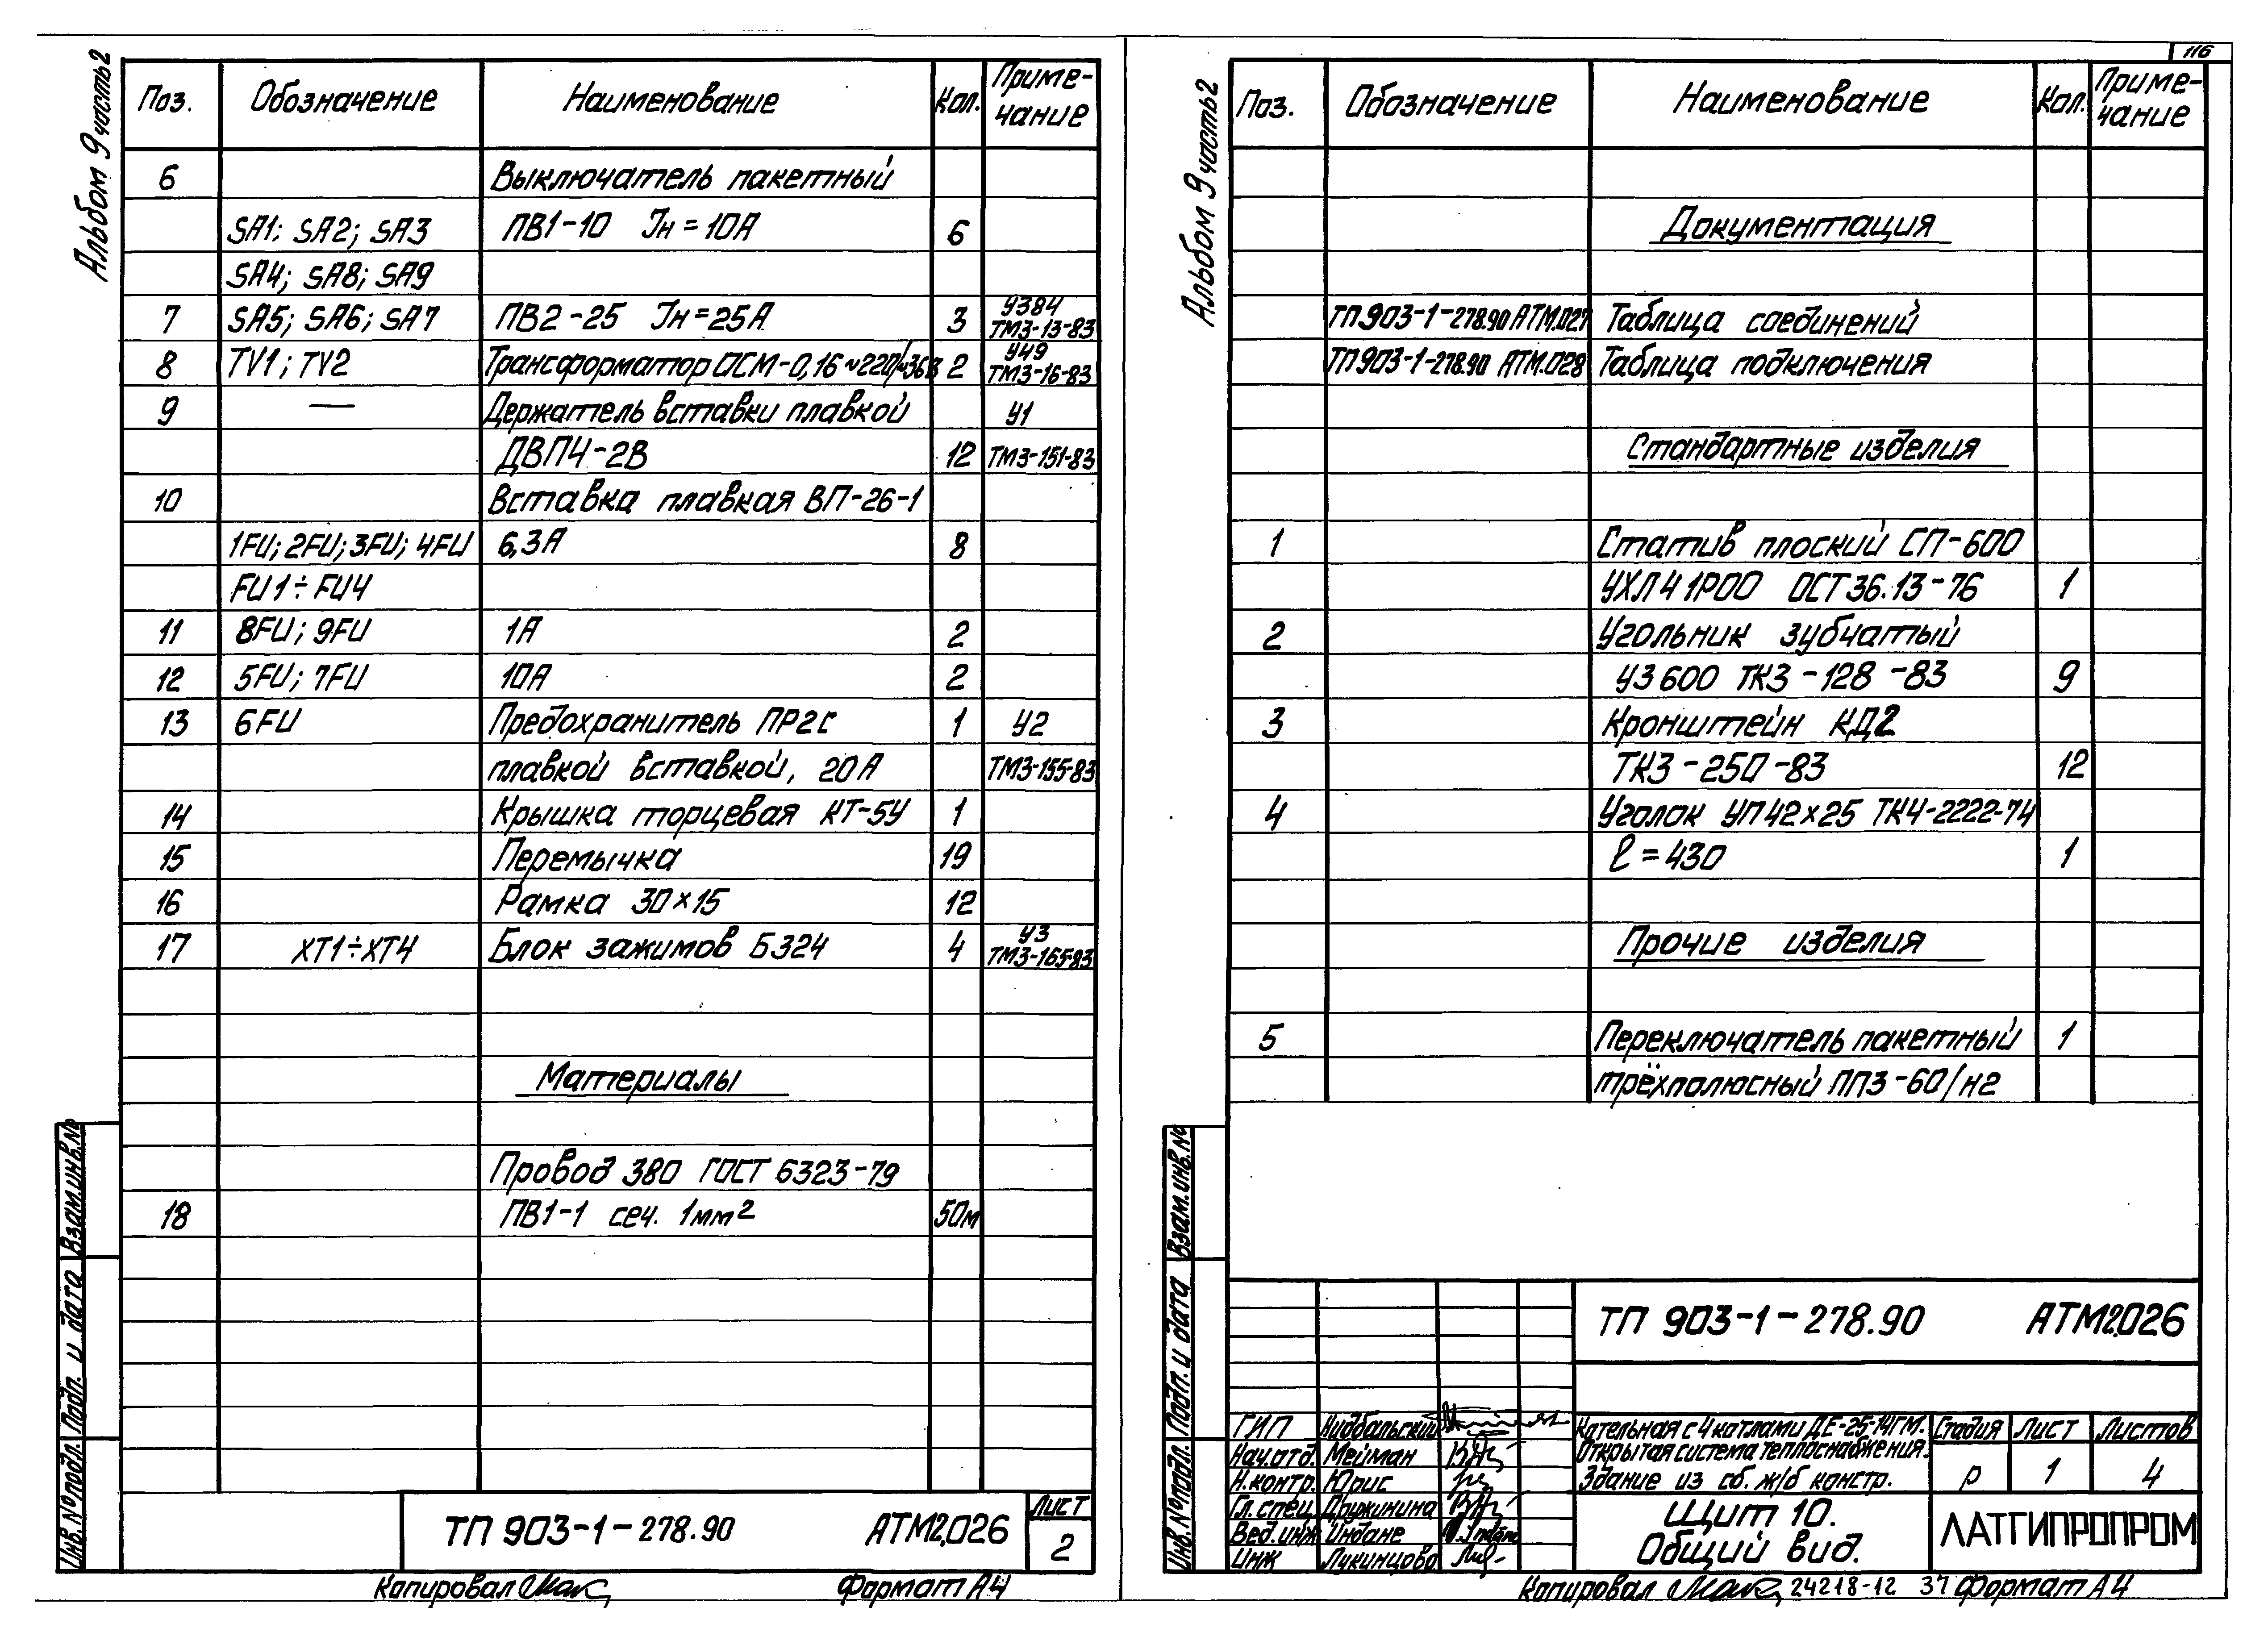 Альбом 9 часть 2
Поз. Обозначение Наименование Кол. Приме-
чание
6 Выключатель пакетный
SA1; SA2; SA3 ПВ1-10 Iн=10А 6
SA4; SA8; SA9
7 SA5; SA6; SA7 ПВ2-25 Iн=25А 3 У384
ТМ3-13-83
8 TV1; TV2 Трансформатор ОСМ-0,16 ~220/~36В 2 У49
ТМ3-16-83
9 — Держатель вставки плавкой У1
ДВП4-2В 12 ТМ3-151-83
10 Вставка плавкая ВП-26-1
1FU; 2FU; 3FU; 4FU 6,3А 8
FU1÷FU4
11 8FU; 9FU 1А 2
12 5FU; 7FU 10А 2
13 6FU Предохранитель ПР2с 1 У2
плавкой вставкой, 20А ТМ3-155-83
14 Крышка торцевая КТ-5У 1
15 Перемычка 19
16 Рамка 30×15 12
17 XT1÷XT4 Блок зажимов Б324 4 У3
ТМ3-165-83
Материалы
Провод 380 ГОСТ 6323-79
18 ПВ1-1 сеч. 1мм² 50м
Инв.№подл. Подп. и дата Взам.инв.№
ТП 903-1-278.90 АТМ2.026
Лист
2
Копировал
Формат А4
116
Альбом 9 часть 2
Поз. Обозначение Наименование Кол. Приме-
чание
Документация
ТП903-1-278.90 АТМ.027 Таблица соединений
ТП903-1-278.90 АТМ.028 Таблица подключения
Стандартные изделия
1 Статив плоский СП-600
УХЛ4 1Р00 ОСТ36.13-76 1
2 Угольник зубчатый
УЗ600 ТК3-128-83 9
3 Кронштейн КД2
ТК3-250-83 12
4 Уголок УП42×25 ТК4-2222-74
ℓ=430 1
Прочие изделия
5 Переключатель пакетный 1
трёхполюсный ПП3-60/н2
Инв.№подл. Подп. и дата Взам.инв.№
ТП 903-1-278.90 АТМ2.026
ГИП Нидбальский
Нач.отд. Мейман
Н.контр. Юрис
Гл.спец. Дружинина
Вед.инж Индане
Инж Лукинцова
Котельная с 4 котлами ДЕ-25-14ГМ.
Открытая система теплоснабжения.
Здание из сб. ж/б констр.
Стадия Лист Листов
Р 1 4
Щит 10.
Общий вид.
ЛАТГИПРОПРОМ
Копировал 24218-12 37 Формат А4